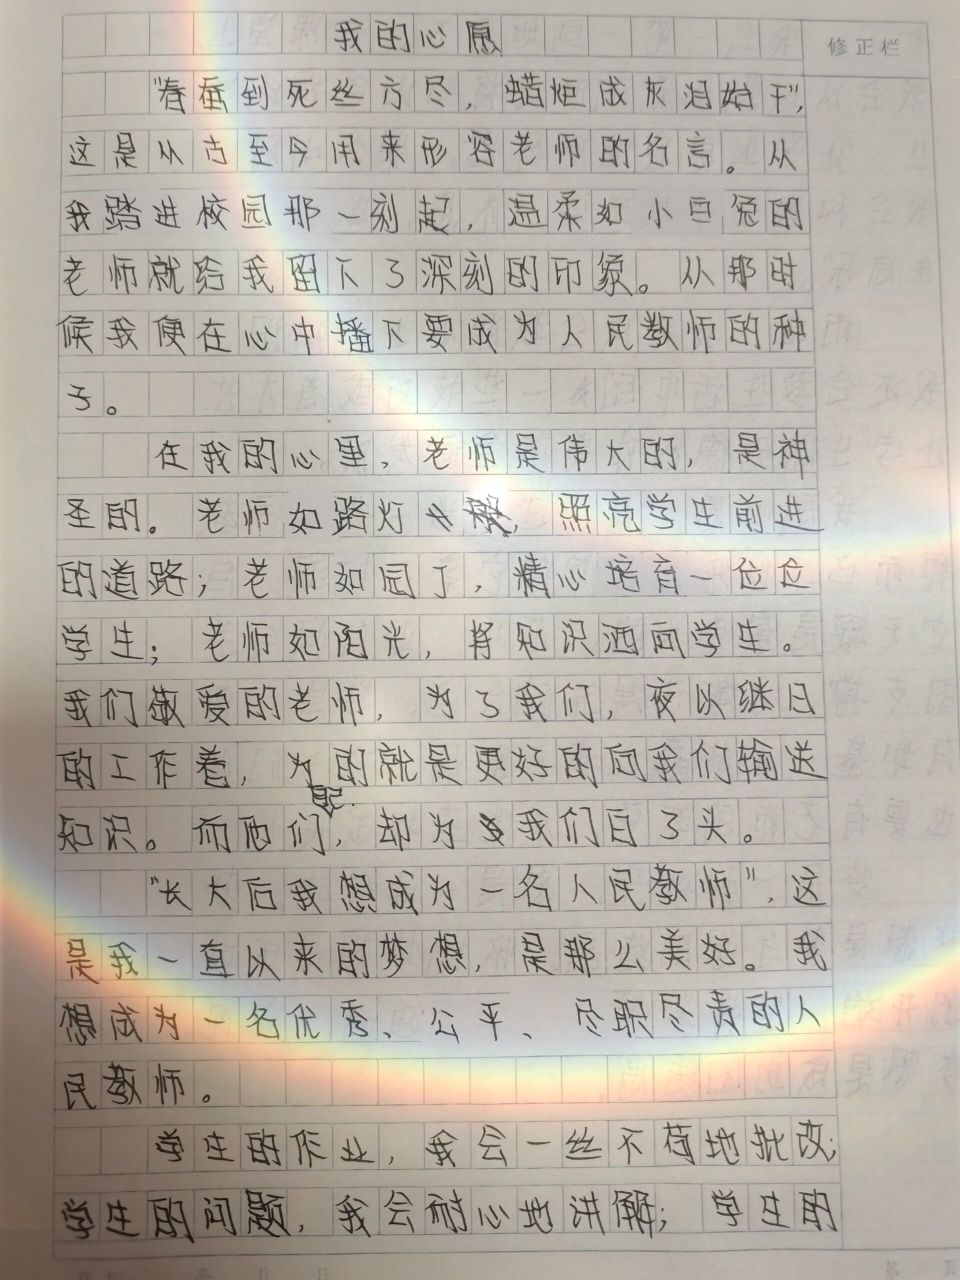 我的心愿
修正栏
“春蚕到死丝方尽，蜡炬成灰泪始干”，
这是从古至今用来形容老师的名言。从
我踏进校园那一刻起，温柔如小白兔的
老师就给我留下了深刻的印象。从那时
候我便在心中播下要成为人民教师的种
子。
在我的心里，老师是伟大的，是神
圣的。老师如路灯，照亮学生前进
的道路；老师如园丁，精心培育一位位
学生；老师如阳光，将知识洒向学生。
我们敬爱的老师，为了我们，夜以继日
的工作着，为的就是更好的向我们输送
知识。而他们，却为我们白了头。
“长大后我想成为一名人民教师”，这
是我一直以来的梦想，是那么美好。我
想成为一名优秀、公平、尽职尽责的人
民教师。
学生的作业，我会一丝不苟地批改；
学生的问题，我会耐心地讲解；学生的